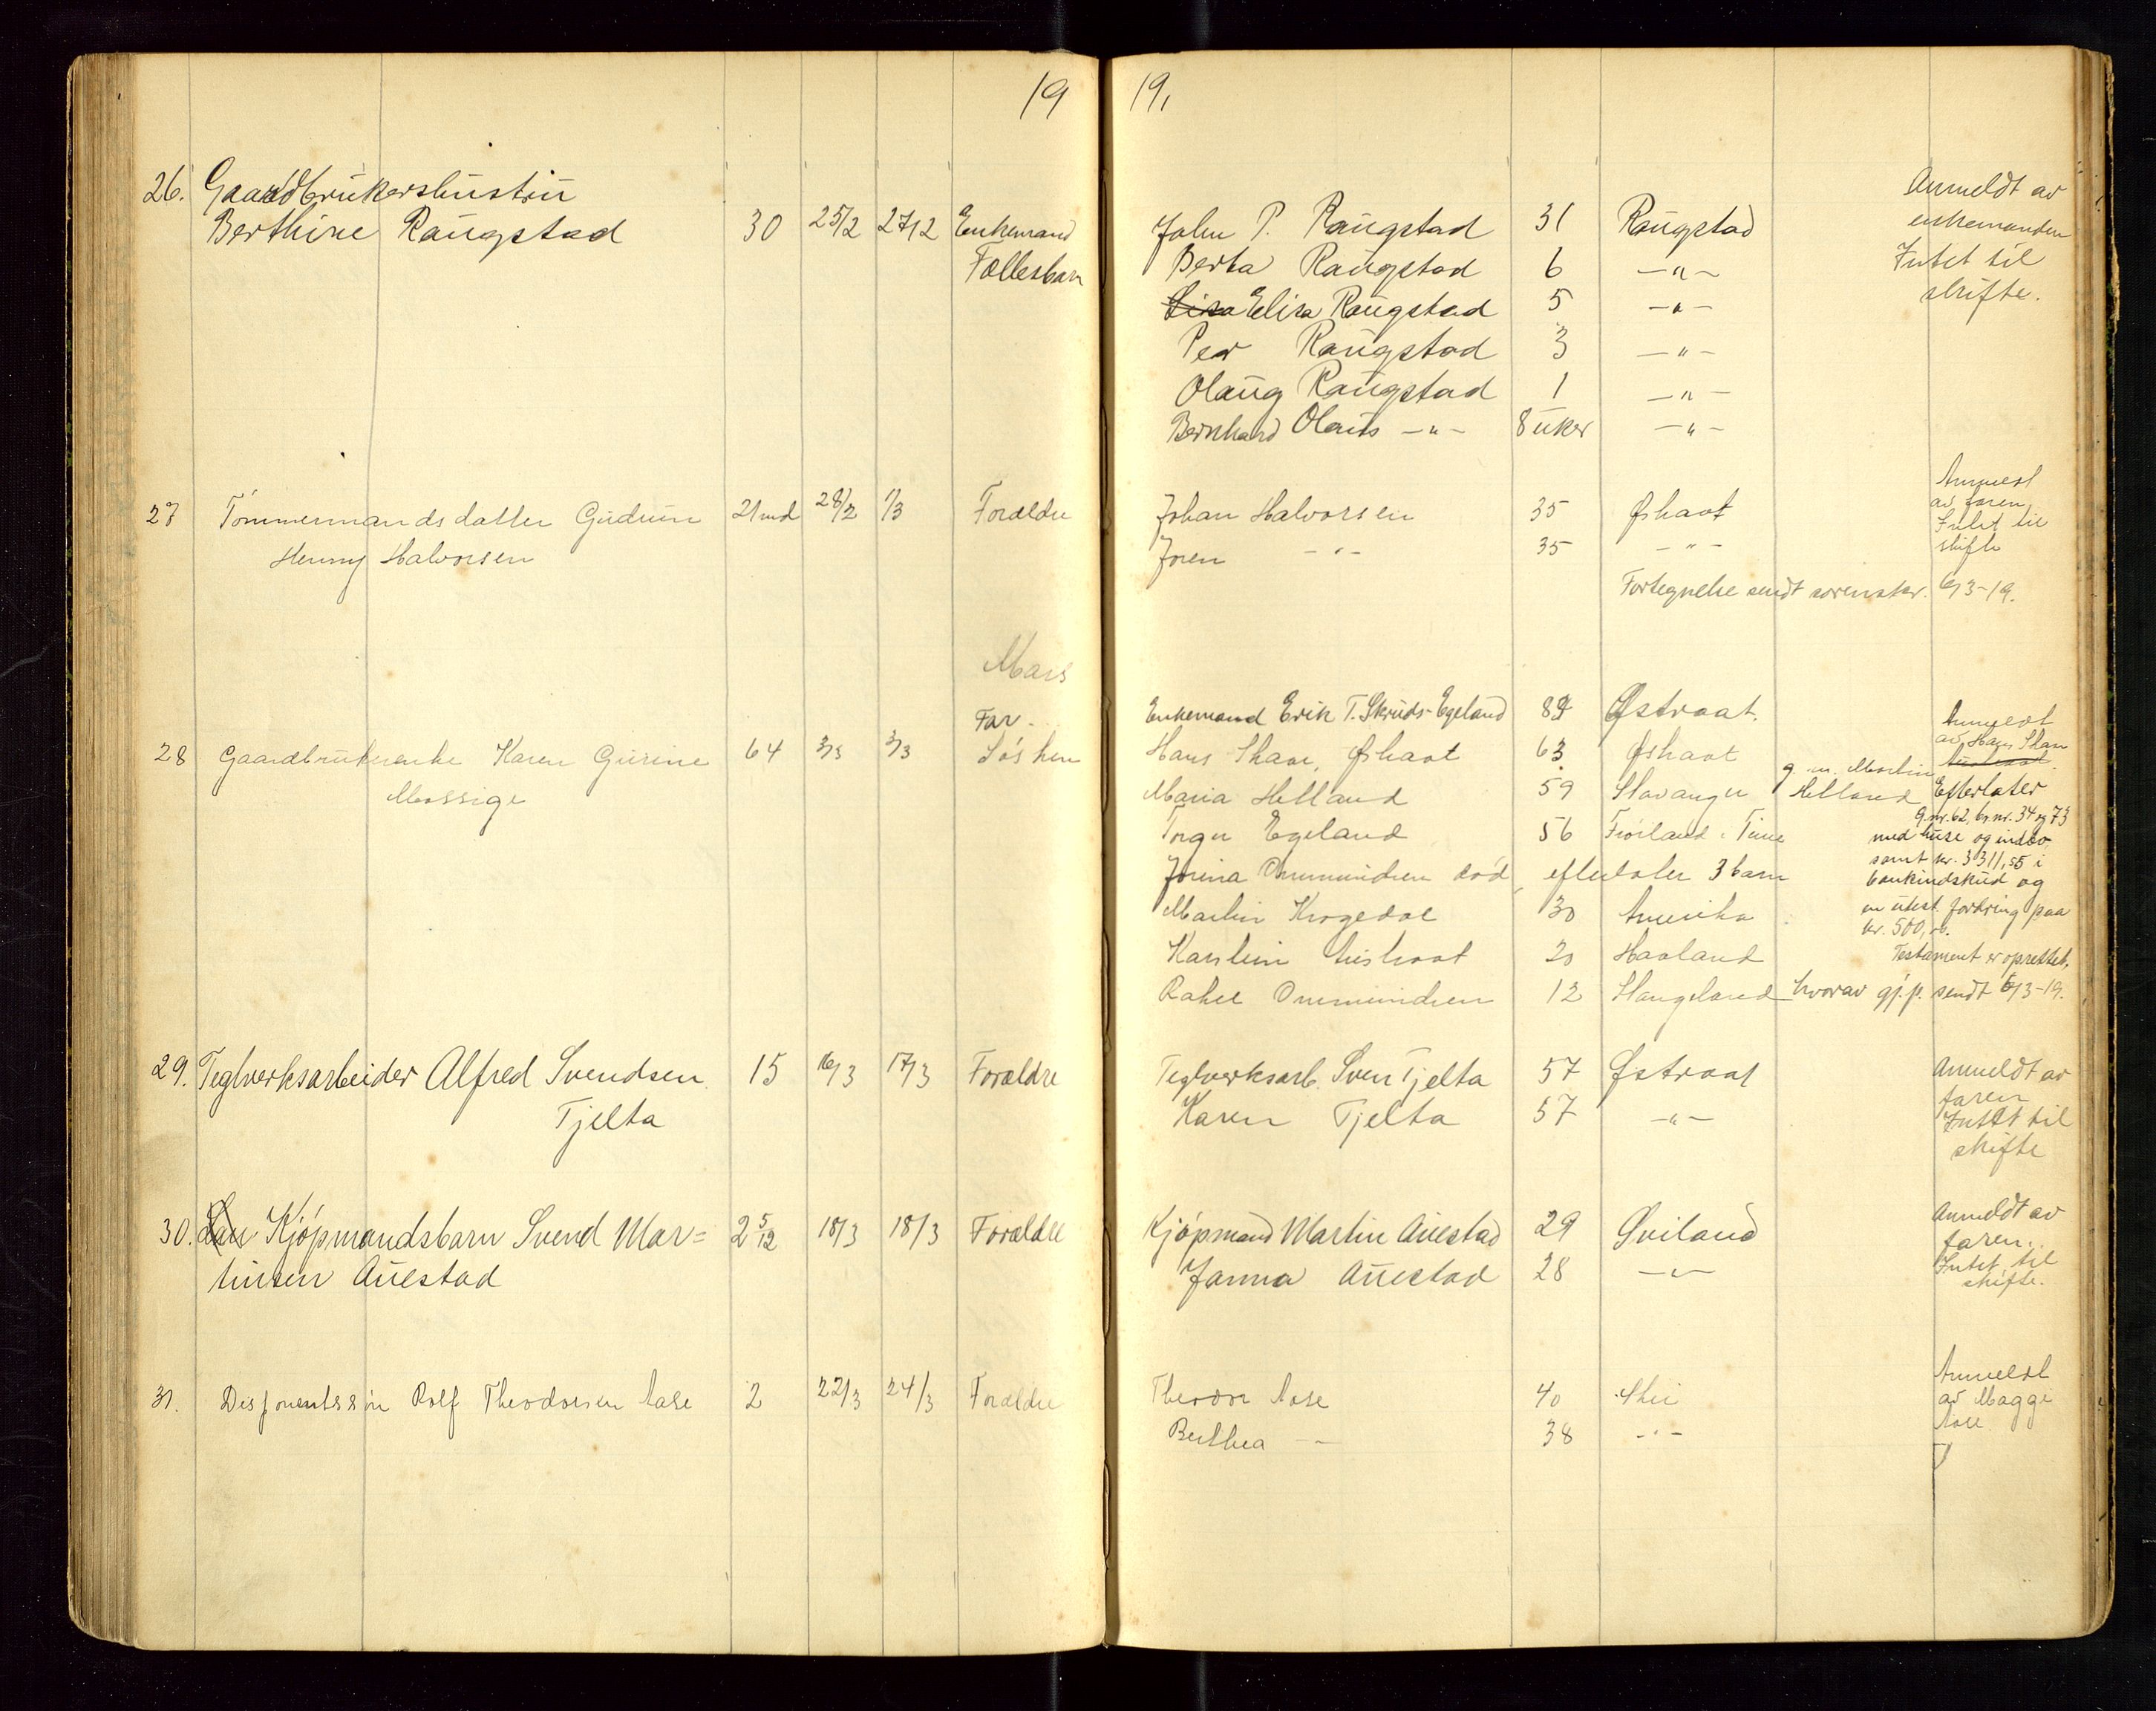 19
19,
26. Gaardbrukershustru
Berthine Raugstad 30 25/2 27/2 Enkemand John P. Raugstad 31 Raugstad Anmeldt av enkemanden
Fællesbarn Berta Raugstad 6 -"- Intet til
Lisa Elisa Raugstad 5 -"- skifte.
Per Raugstad 3 -"-
Olaug Raugstad 1 -"-
Bernhard Olaus -"- 8 uker -"-
27 Tømmermandsdatter Gudrun 21 md 28/2 1/3 Forældre Johan Halvorsen 35 Østraat Anmeldt av faren,
Henny Halvorsen Joren -"- 35 -"- Intet til skifte
Fortegnelse sendt sorenskr. 6/3-19.
Mars
Far. Enkemand Erik T. Skruds-Egeland Østraat.
28 Gaardbrukerenke Karen Gurine 64 3/3 3/3 Søsken Hans Skaar, Østraat 63 Østraat Anmeldt av Hans Skaar
Mossige Maria Helland 59 Stavanger g. m. Martin Helland Efterlater
Torger Egeland 56 Frøiland i Time G.nr. 62, br.nr. 34 og 73
med huse og indbo
samt kr. 3311,55 i
Jorina Ommundsen død, efterlater 3 barn bankindskud og
Martin Krogedal 30 Amerika en utest. fordring paa
kr. 500,
20 Haaland Testament er oprettet,
Rakel Ommundsen 12 hvorav gj.p. sendt 6/3-19.
29. Teglverksarbeider Alfred Svendsen 15 16/3 17/3 Forældre Teglverksarb. Sven Tjelta 57 Østraat Anmeldt av
Tjelta Karen Tjelta 57 -"- faren
Intet til
skifte
30. Kjøpmandsbarn Svend Mar= 2 5/12 18/3 18/3 Forældre Kjøpmand Martin Auestad 29 Sviland Anmeldt av
tinsen Auestad Janna Auestad 28 -"- faren.
Intet til
skifte.
31. Disponentssøn Rolf Theodorsen Aase 2 22/3 24/3 Forældre Theodor Aase 40 Anmeldt
av Magge
Berthea - 38 -"- Aase